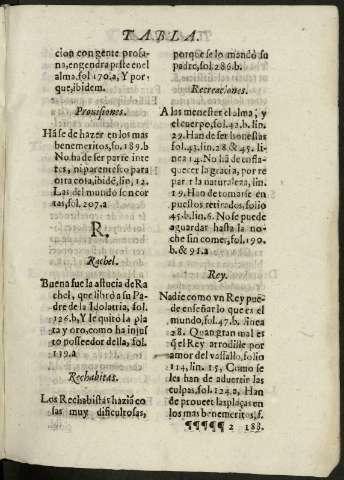 TABLA.
cion con gente profa-
na, engendra peste en el
alma, fol 170.a, Y por
que, ibidem.
Prouisiones.
Hase de hazer en los mas
benemeritos, fo. 189.b
No ha de ser parte inte
res, ni parentesco para
otra cosa, ibidē, lin, 12.
Las del mundo son cor
tas, fol. 207.a
R.
Rachel.
Buena fue la astucia de Ra
chel, que librò a su Pa-
dre de la Idolatria, fol.
126.b, Y le quitò la pla
ta y oro, como ha injus
to posseedor della, fol.
139.a
Rechabitas.
Los Rechabistas haziā co
sas muy dificultosas,
porque se lo mandò su
padre, fol. 286.b.
Recreaciones.
A las menester el alma, y
el cuerpo, fol. 42.b. lin.
29. Han de ser honestas
fol. 43. lin. 28 & 45. li-
nea 14. No hā de enfla-
quecer la gracia, por re
par r la naturaleza, lin.
19. Han de tomarse en
puestos retirados, folio
45.b. lin. 6. No se puede
aguardar hasta la no-
che sin comer, fol. 190.
b. & 91.a
Rey.
Nadie como vn Rey pue-
de enseñar lo que es el
mundo, fol. 47.b. linea
28. Quan gran mal es
q̃ el Rey arrodille por
amor del vassallo, folio
114, lin. 15, Como se
les han de aduertir las
culpas, fol. 124.a, Han
de proueer las plaças en
los mas benemeritos, f.
¶¶¶¶¶ 2 188.